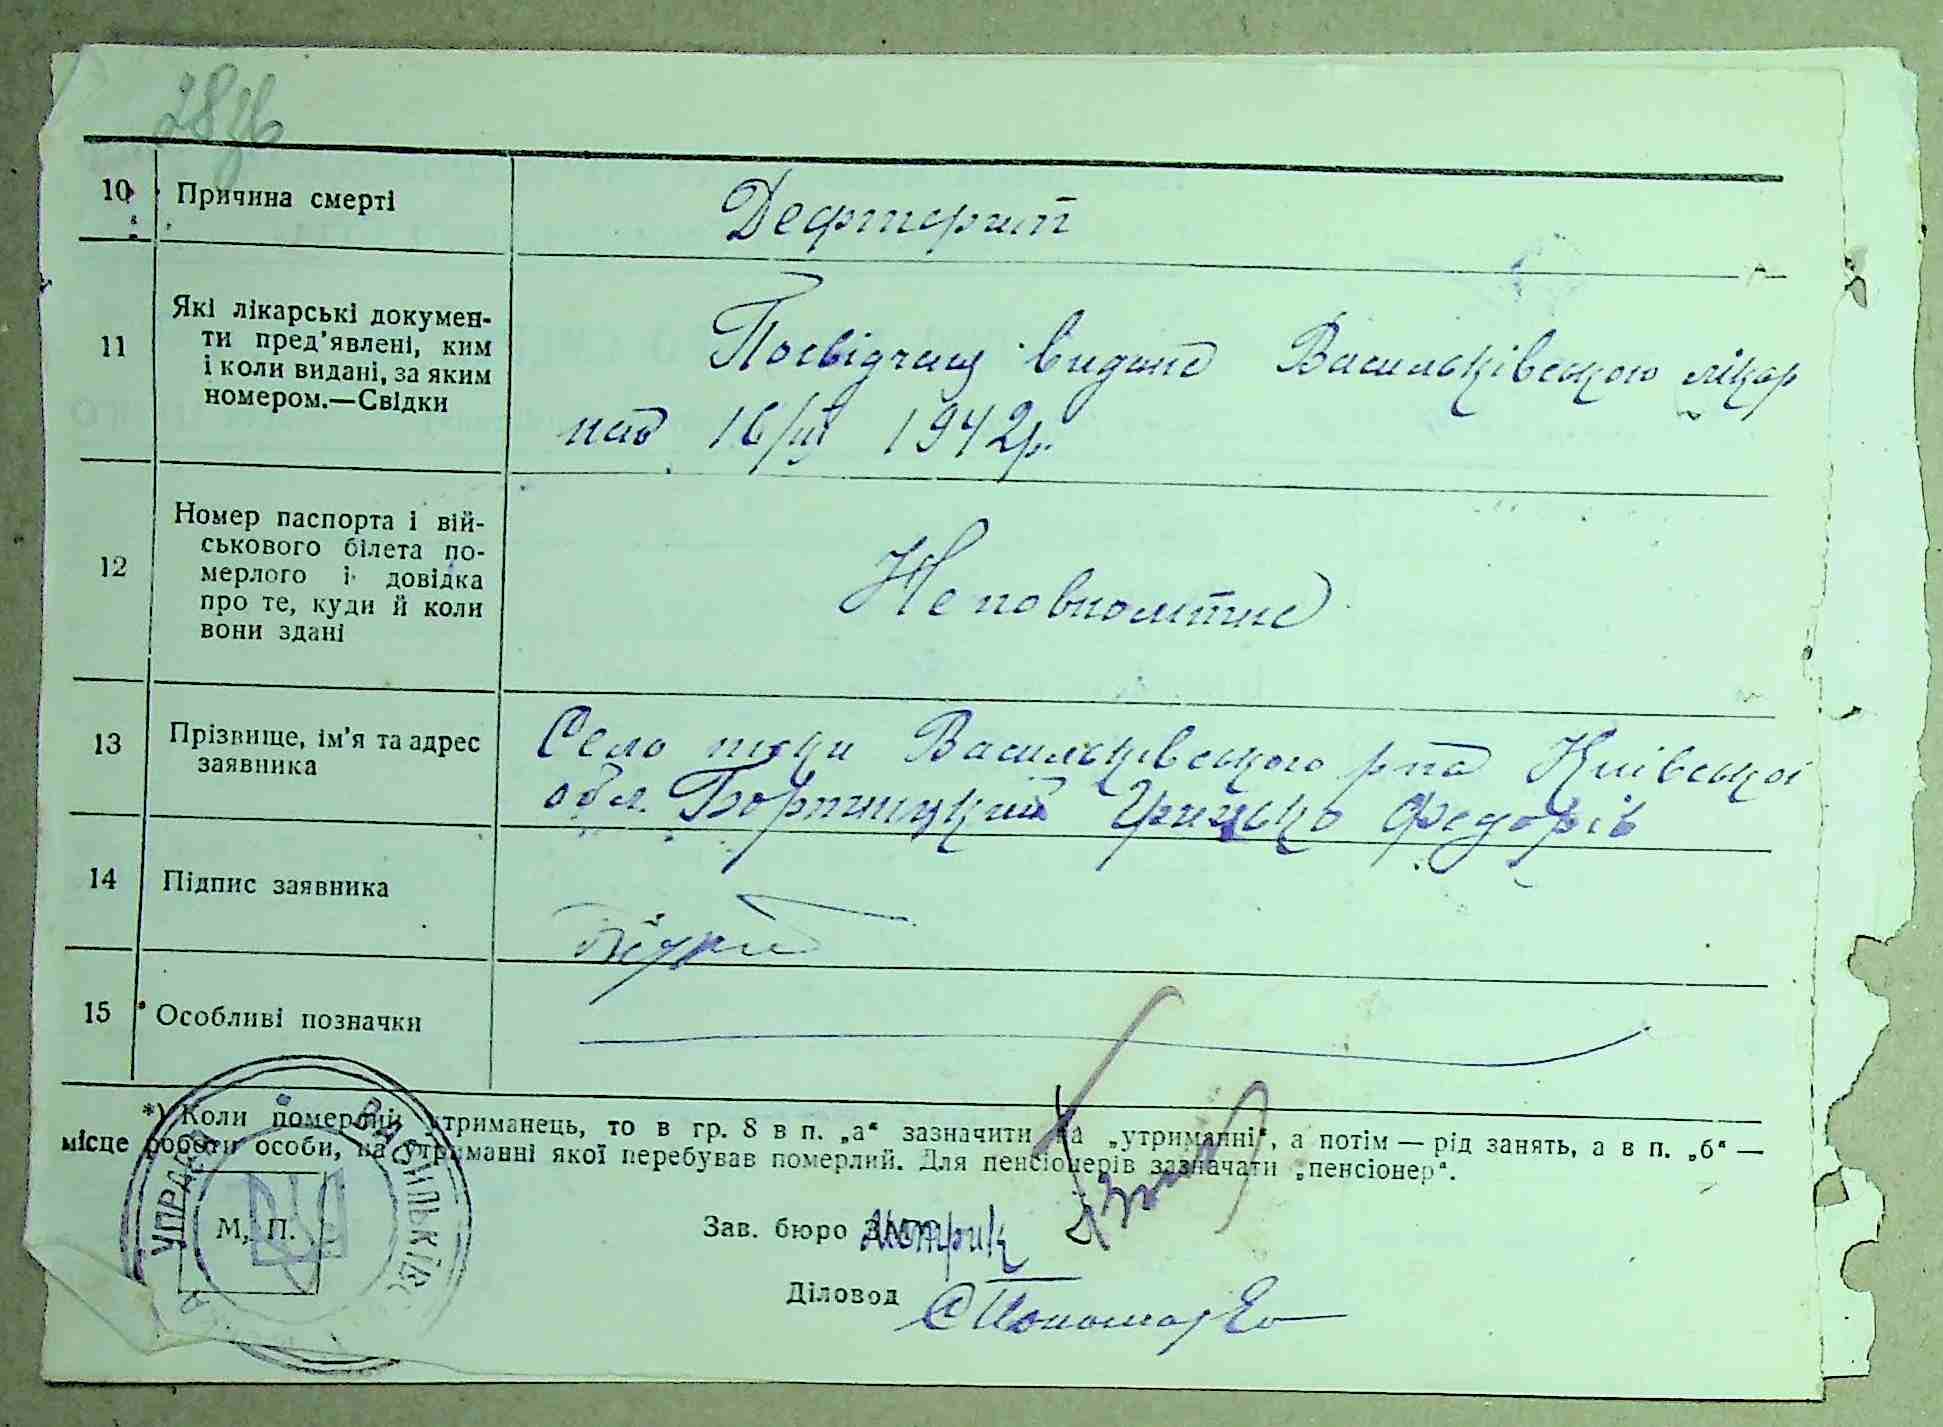 10 Причина смерті Дефтерит
11 Які лікарські докумен-
ти пред'явлені, ким
і коли видані, за яким
номером.—Свідки
Посвідчащ видане Васильківського лікар
над 16/III 1942р.
12 Номер паспорта і вій-
ськового білета по-
мерлого і довідка
про те, куди й коли
вони здані
Неповнолітнє
13 Прізвище, ім'я та адрес
заявника
Село токи Васильківського р-на Київської
обл. Борпницкий Грицько Федорів
14 Підпис заявника
15 Особливі позначки
*) Коли померлий утриманець, то в гр. 8 в п. „а“ зазначити на „утриманні“, а потім — рід занять, а в п. „б“ —
місце роботи особи, на утриманні якої перебував померлий. Для пенсіонерів зазначати „пенсіонер“.
УПРАВА ВАСИЛЬКІВ
М. П.
Зав. бюро ЗАГС
Діловод